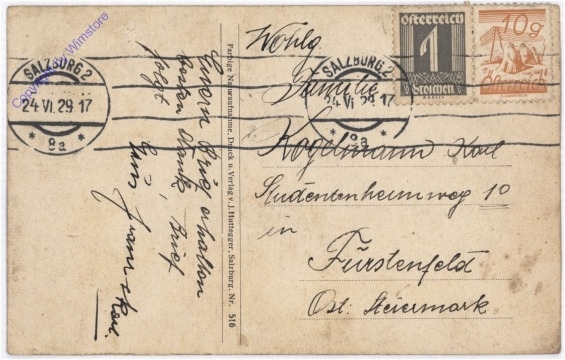 SALZBURG 2
24.VI.29.17
* 8a *
SALZBURG 2
24.VI.29.17
* 8a *
Österreich
1
Groschen
10g
Österreich
Copyright by Wimstore
Euern Brief erhalten
besten Dank, Brief
folgt
Farbige Naturaufnahme, Druck u. Verlag v. J. Huttegger, Salzburg. Nr. 516
Wohlg
Familie
Kogelmann Karl
Studentenheimweg 10
in
Fürstenfeld
Ost. Steiermark